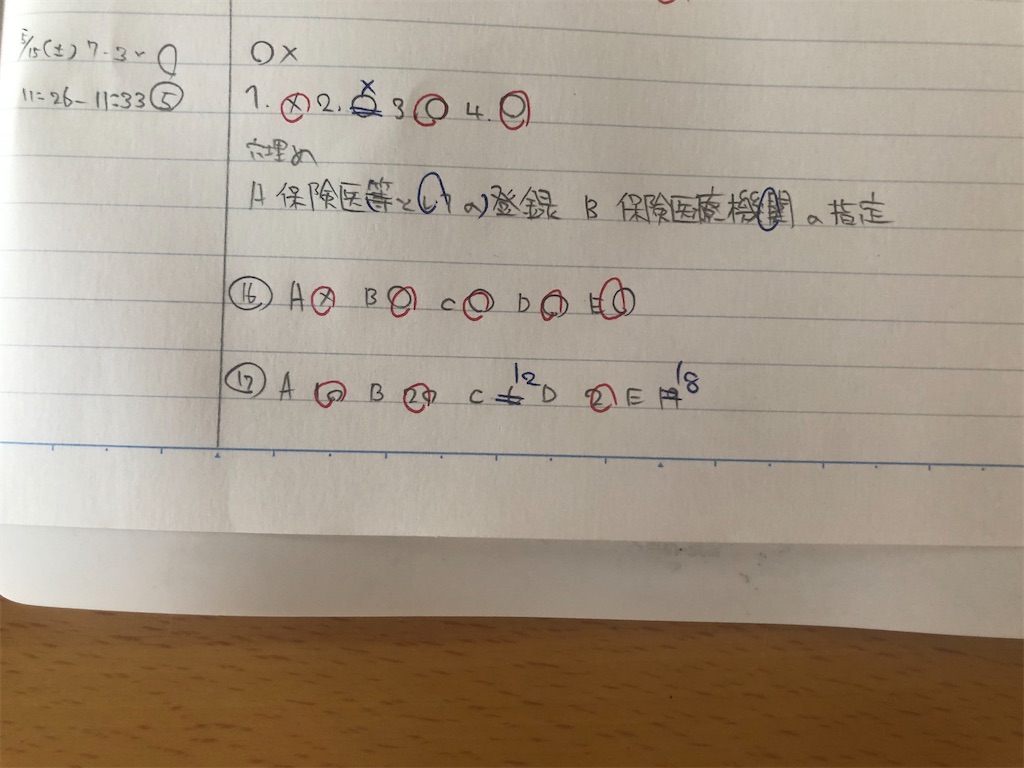 5/15(土) 7-3~
○×
11=26-11=33⑤
1. × 2. ○ × 3 ○ 4. ○
穴埋め
A 保険医等としての登録 B 保険医療機関の指定
⑯ A × B ○ C ○ D ○ E ○
⑰ A B C 12 D E 18